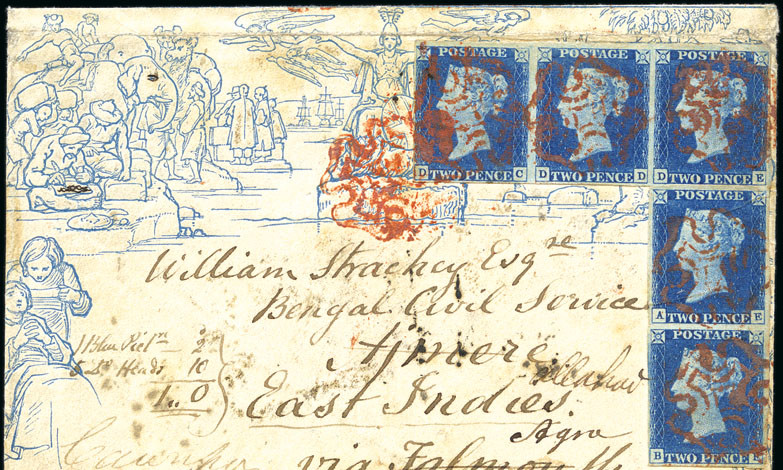 POSTAGE POSTAGE POSTAGE
TWO PENCE TWO PENCE TWO PENCE
D C D D D E
POSTAGE
TWO PENCE
A E
POSTAGE
TWO PENCE
B E
William Strachey Esqre
Bengal Civil Service
Ajmere
East Indies.
Agra
via Falmouth
1 Blue 2
5 Do Heads 10
1..0